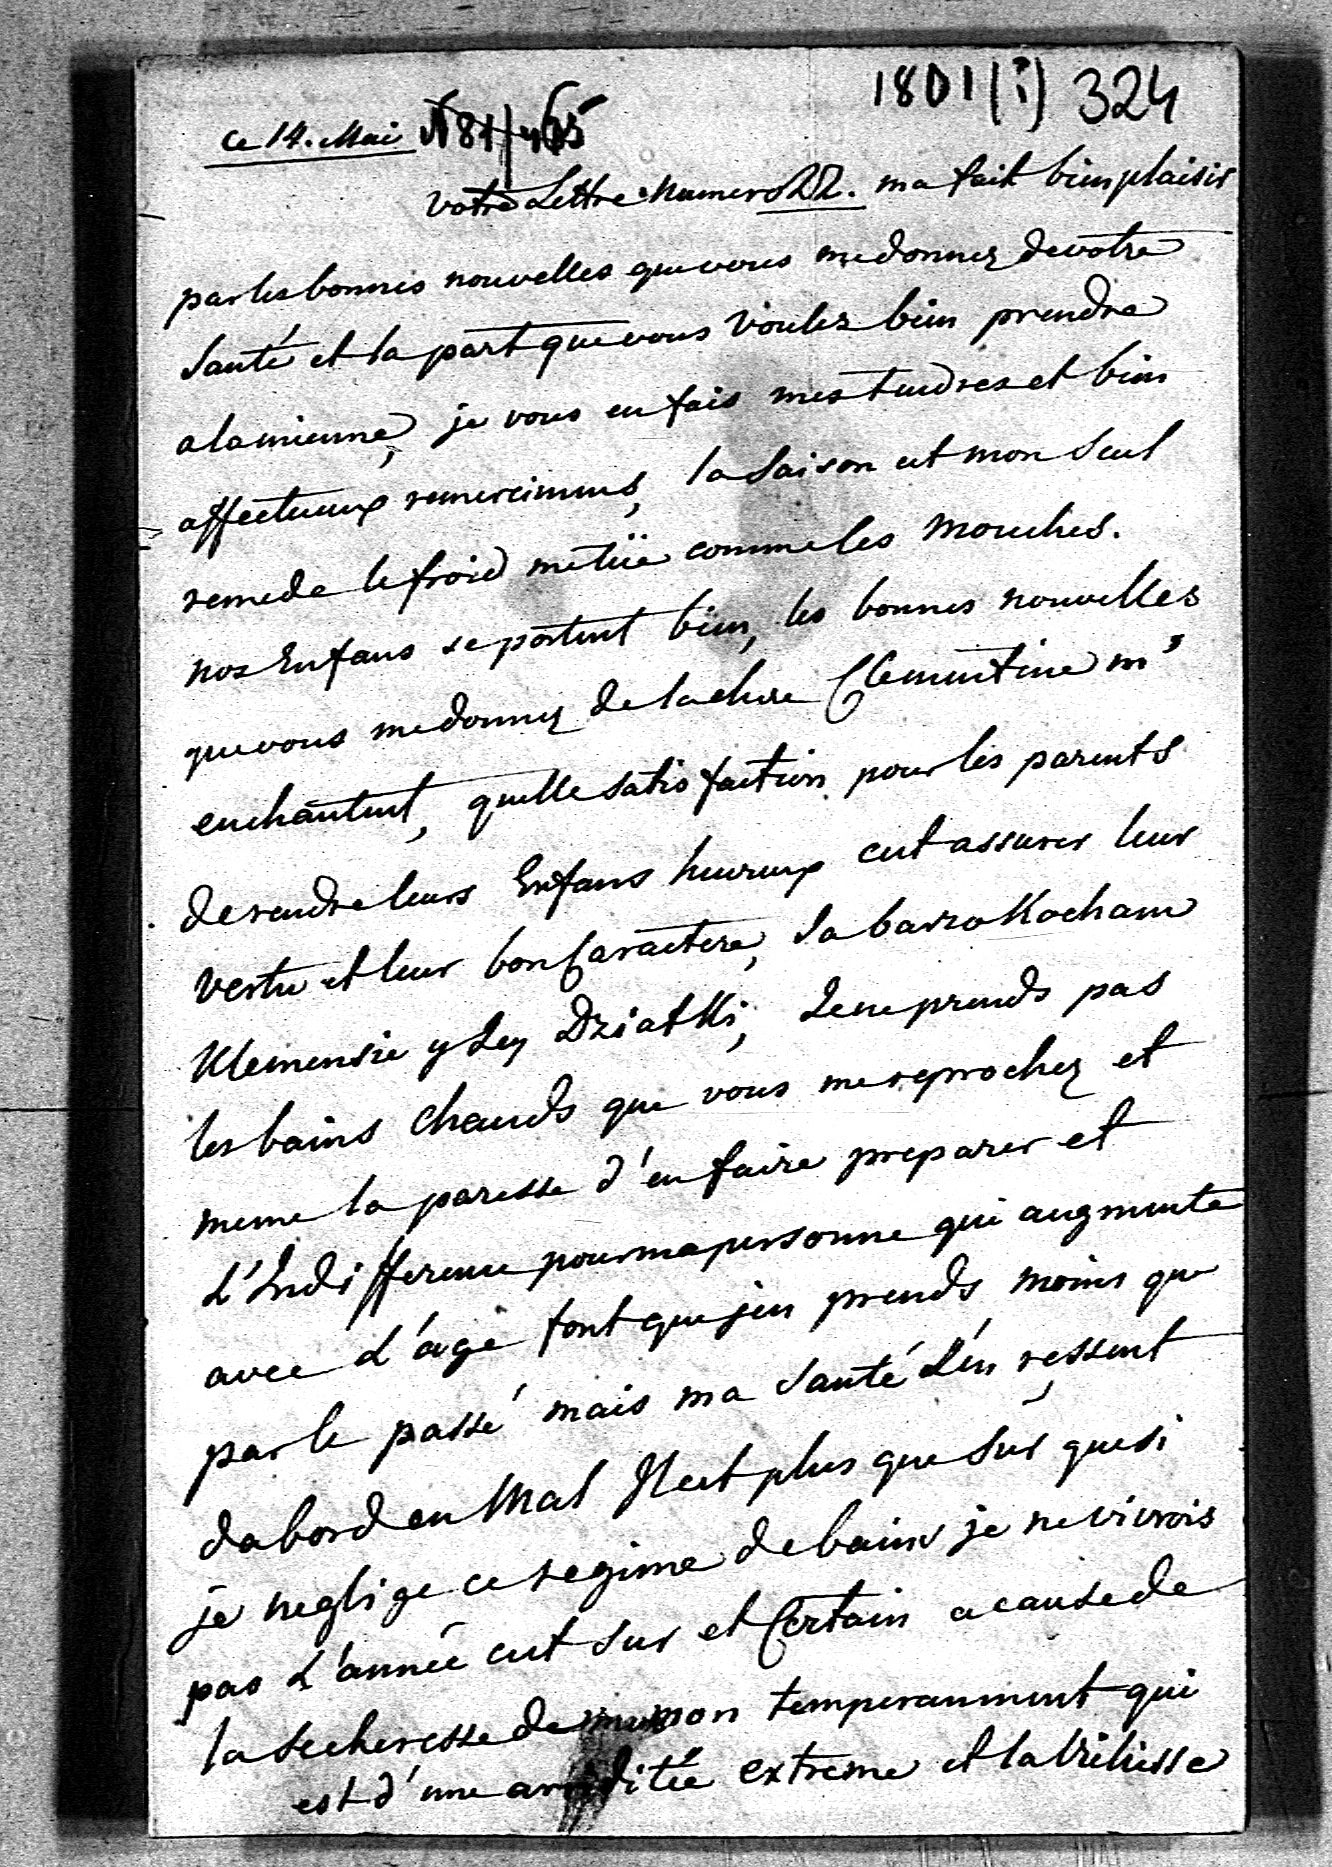 1801 (?) 324
ce 14. Mai N 81
votre Lettre Numero 22. ma fait bien plaisir
par les bonnes nouvelles que vous me donnez de votre
Santé et la part que vous voulez bien prendre
a la mienne, je vous en fais mes tendres et bien
affectueux remercimens, la Saison est mon Seul
remede le froid me tüe comme les mouches.
nos Enfans se portent bien, les bonnes nouvelles
que vous me donnez de la chere Clementine m'
enchantent, quelle satisfaction pour les parents
de rendre leurs Enfans heureux c'est assurer leur
vertu et leur bon Caractere, Ja barzo Kocham
Klemensie y Jey Dziatki, Je ne prends pas
les bains chauds que vous me reprochez et
meme la paresse d'en faire preparer et
L'Indifference pour ma personne qui augmente
avec L'age font que j'en prends moins que
par le passé mais ma Santé S'en ressent
dabord en Mal Il est plus que Sur que si
je neglige ce regime de bains je ne vivrois
pas L'année c'est Sur et Certain a cause de
la secheresse de mon temperamment qui
est d'une ariditée extreme et la Vieliesse